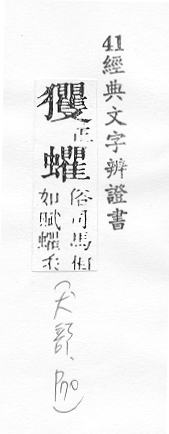 41經典文字辨證書
玃正
蠷俗司馬相
如賦蠷
(犬部、